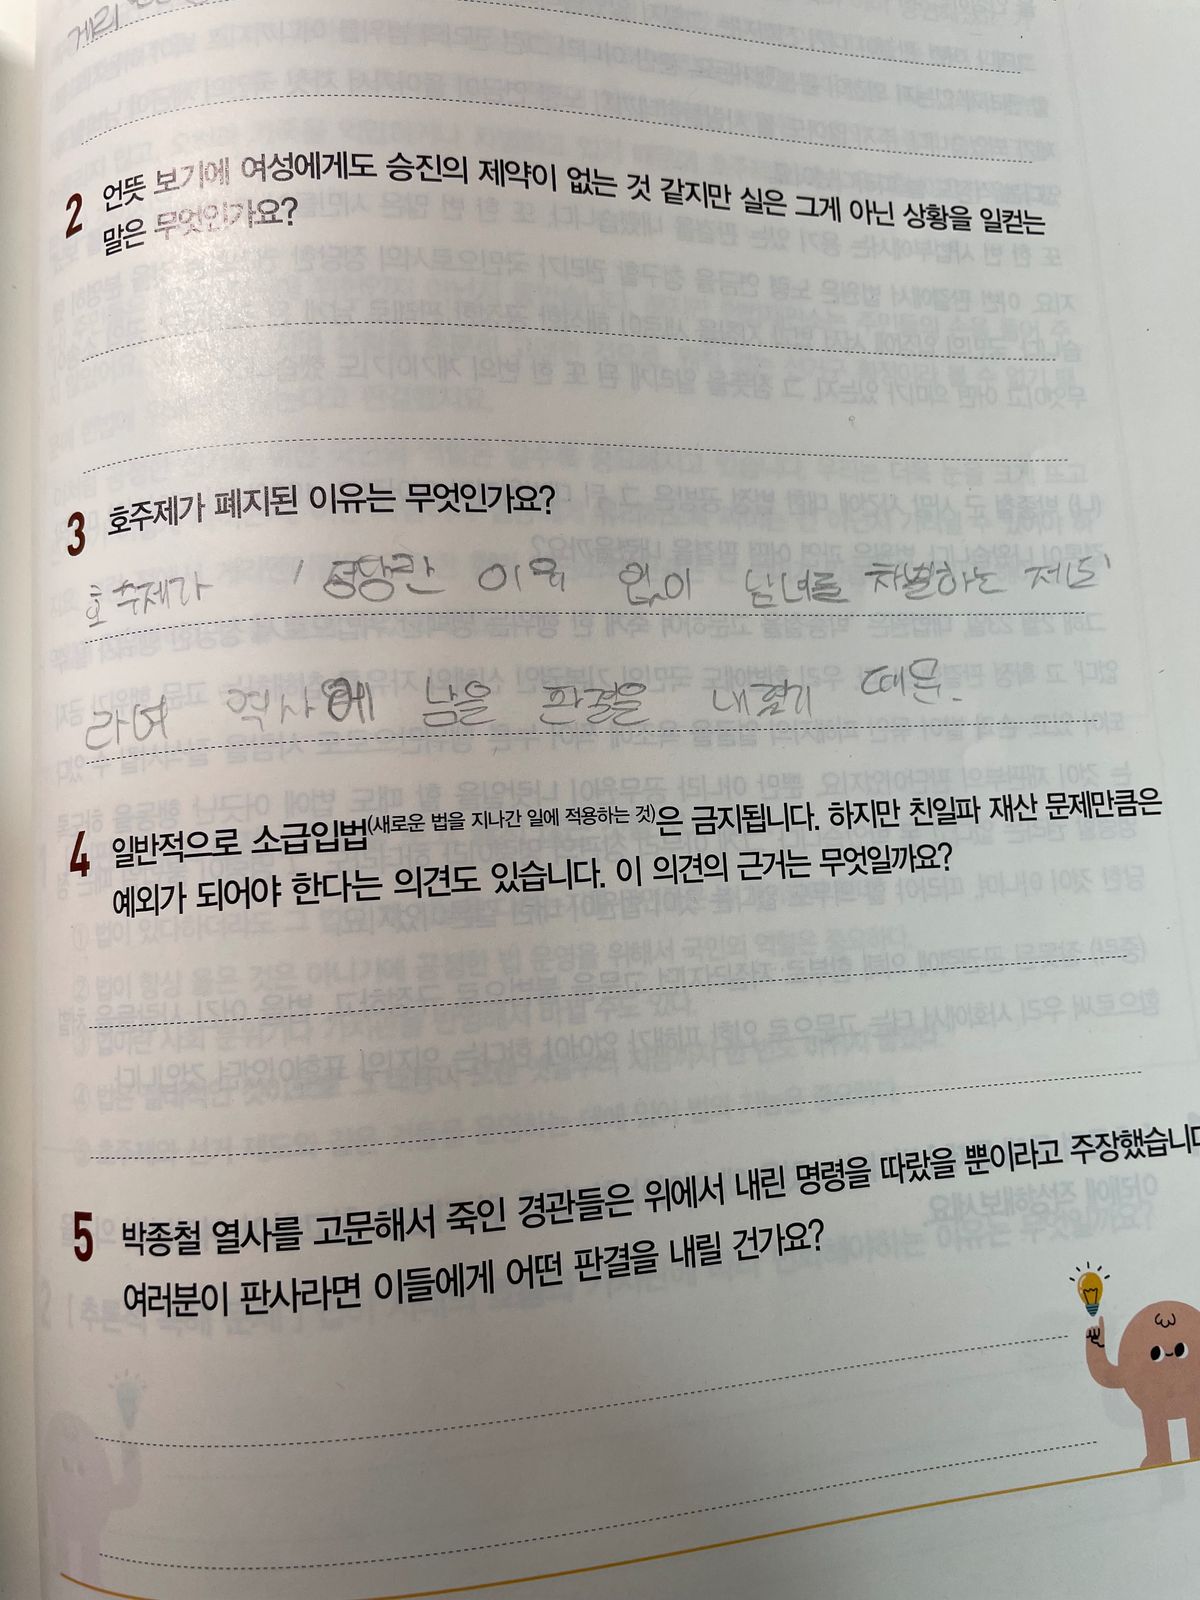 게리
2 언뜻 보기에 여성에게도 승진의 제약이 없는 것 같지만 실은 그게 아닌 상황을 일컫는
말은 무엇인가요?
3 호주제가 폐지된 이유는 무엇인가요?
호주제가 '정당한 이유 없이 남녀를 차별하는 제도'
라며 역사에 남을 판결을 내렸기 때문.
4 일반적으로 소급입법(새로운 법을 지나간 일에 적용하는 것)은 금지됩니다. 하지만 친일파 재산 문제만큼은
예외가 되어야 한다는 의견도 있습니다. 이 의견의 근거는 무엇일까요?
5 박종철 열사를 고문해서 죽인 경관들은 위에서 내린 명령을 따랐을 뿐이라고 주장했습니다
여러분이 판사라면 이들에게 어떤 판결을 내릴 건가요?